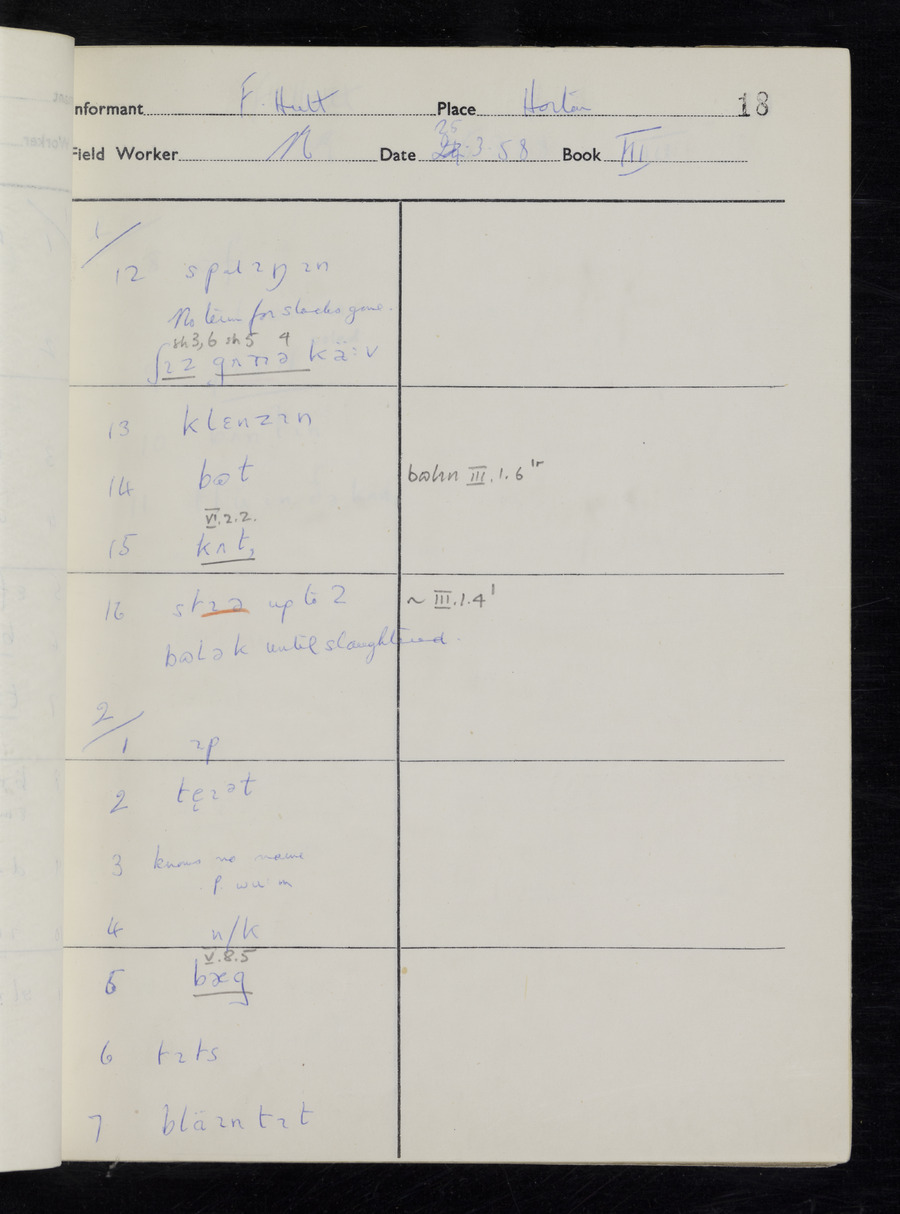 Informant F. Hutt Place Horton 18
Field Worker Date 25.3.58 Book III
1/
12 spɹɪŋɪn
No term for slacks gone.
sh 3,6 sh 5 4
ʃɪz gʌnə kä:v
13 klɛnzɪn
14 bət III.1.6
VI.2.2.
15 kʌt,
16 stɪə up to 2 ~ III.1.4
until slaughtered.
2/
1 ɪp
2 tęɪət
3 knows no name
4 n/k
V.8.5
5 bæg
6 tɪts
7 bläɪn tɪt